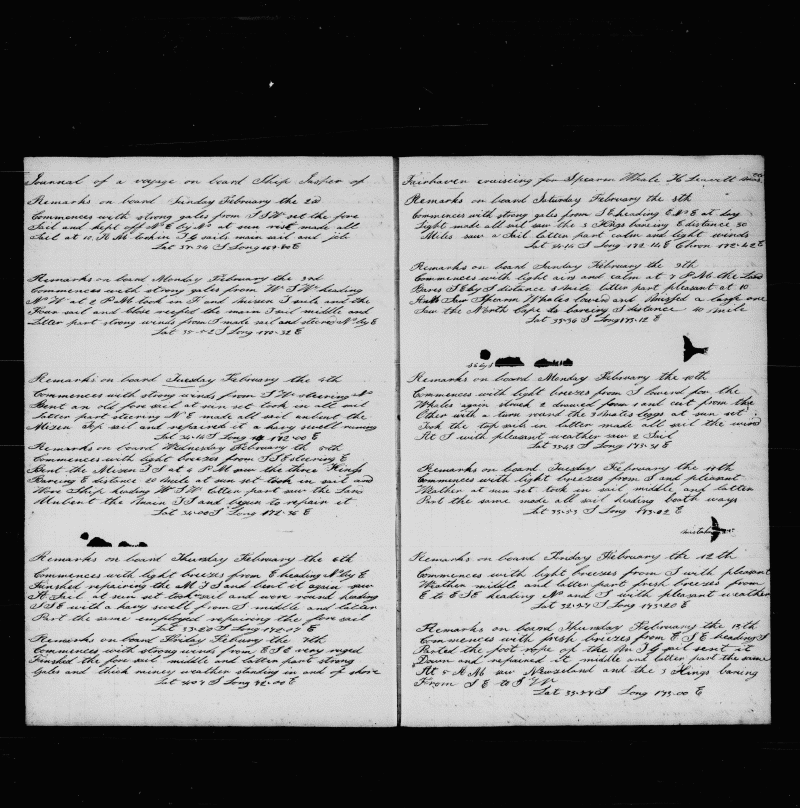 Journal of a voyage on board Ship Jasper of
Remarks on board Sunday February the 2d
Commences with strong gales from SSW set the fore
Sail and kept off NE by N at sun rise made all
Sail at 10 AM took in TG sails main sail and jib
Lat 37-34 S Long E
Remarks on board Monday February the 3rd
Commences with strong gales from WSW heading
NW at 2 PM took in F and Mizen T sails and the
Four sail and close reefed the main T sail middle and
Latter part strong winds from S made sail and steered N by E
Lat 35-52 S Long 170-32 E
Remarks on board Tuesday February the 4th
Commences with strong winds from SW steering No
Bent an old fore sail at sun set took in all sail
Latter part steering NE made all sail unbent the
Mizen Top sail and repaired it a havy swell runing
Lat 34-14 S Long 172-00 E
Remarks on board Wednesday February th 5th
Commences with light breezes from SSE steering E
Bent the Mizen TS at 4 PM saw the three Kings
Bareing E distance 20 mile at sun set took in sail and
Wore Ship heading WSW latter part saw the Land
Unbent the Main TS and begun to repair it
Lat 34-00 S Long 172-36 E
Remarks on board Thursday February the 6th
Commences with light breezes from E heading N by E
Finished repairing the M TS and bent it again saw
A Sail at sun set took sail and wore round heading
SSE with a havy swell from S middle and latter
Part the same employed repairing the fore sail
Lat 33-50 S Long 172-07 E
Remarks on board Friday Febuary the 7th
Commences with strong winds from ESE very ruged
Finished the fore sail middle and latter part strong
Gales and thick rainey weather standing in and of shore
Lat S Long E
Fairhaven cruiseing for Spearm Whale H Leavitt
Remarks on board Saturday February the 8th
Commences with strong gales from SE heading ENE at day
Light made all sail saw the 3 Kings bareing E distance 30
Miles saw a Sail latter part calm and light winds
Lat 34-14 S Long 172-14 E Chron 172-42 E
Remarks on board Sunday February the 9th
Commences with light airs and calm at 7 PM the Land
Bares SE by S distance 8 Mile latter part pleasant at 10
AM Saw Spearm Whales lowerd and missed a large one
Saw the North Cape bareing S distance 40 mile
Lat 33-36 S Long 173-12 E
S b by S
Remarks on board Monday February the 10th
Commences with light breezes from S lowerd for the
Whales again struck 2 drawed from 1 and cut from the
Other with a turn round the 3 Mates leggs at sun set
Took the top sails in latter made all sail the wind
At S with pleasant weather saw 2 Sail
Lat 33-43 S Long 173-31 E
Remarks on board Tuesday February the 11th
Commences with light breezes from S and pleasant
Weather at sun set took in sail middle and latter
Part the same made all sail heading boath ways
Lat 33-53 S Long 173-02 E
Remarks on board February the 12th
Commences with light breezes from S with pleasant
Weather middle and latter part fresh breezes from
E to ESE heading N and S with pleasant weather
Lat 32-47 S Long 173-20 E
Remarks on board Thursday February the 13th
Commences with fresh breezes from ESE heading S
Parted the foot rope of the Mn TG sail sent it
Down and repaired it middle and latter part the same
At 5 AM saw Newzeland and the 3 Kings baring
From SE to SW
Lat 33-37 S Long 173-00 E